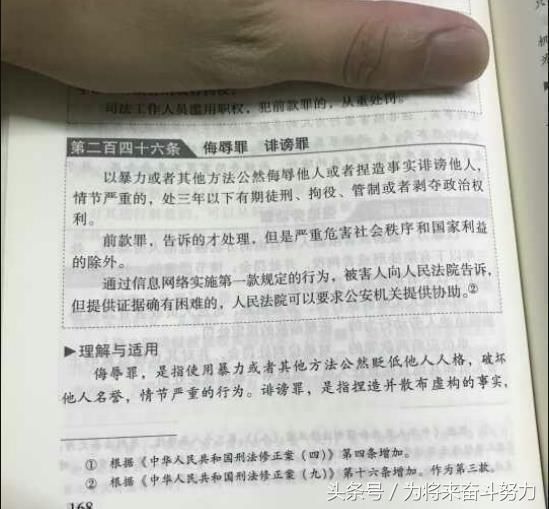 司法工作人员滥用职权，犯前款罪的，从重处罚。
第二百四十六条 侮辱罪 诽谤罪
以暴力或者其他方法公然侮辱他人或者捏造事实诽谤他人，
情节严重的，处三年以下有期徒刑、拘役、管制或者剥夺政治权
利。
前款罪，告诉的才处理，但是严重危害社会秩序和国家利益
的除外。
通过信息网络实施第一款规定的行为，被害人向人民法院告诉，
但提供证据确有困难的，人民法院可以要求公安机关提供协助。②
▶理解与适用
侮辱罪，是指使用暴力或者其他方法公然贬低他人人格，破坏
他人名誉，情节严重的行为。诽谤罪，是指捏造并散布虚构的事实，
① 根据《中华人民共和国刑法修正案（四）》第四条增加。
② 根据《中华人民共和国刑法修正案（九）》第十六条增加。作为第三款。
168
头条号／为将来奋斗努力